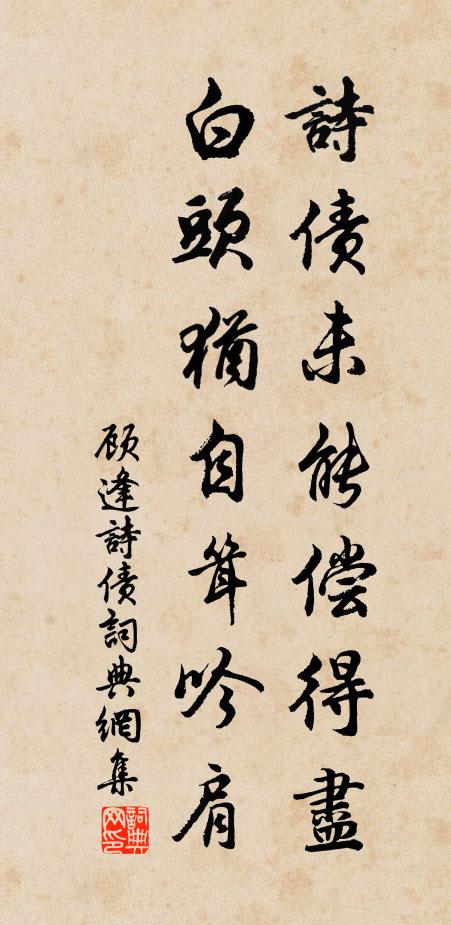 詩債未能偿得盡
白頭猶自耸吟肩
顾逢詩債詞典網集
詞典網印